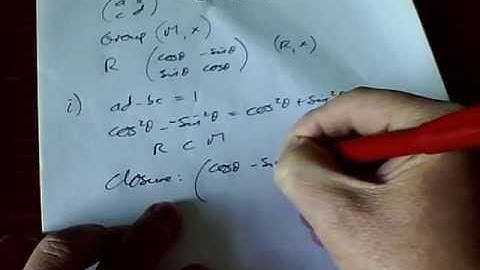 (a b
c d)
Group (M, x)
R (cosθ -sinθ
sinθ cosθ) (R, x)
i) ad-bc = 1
cos²θ - -sin²θ = cos²θ + sin²θ
R ⊂ M
Closure: (cosθ -sin